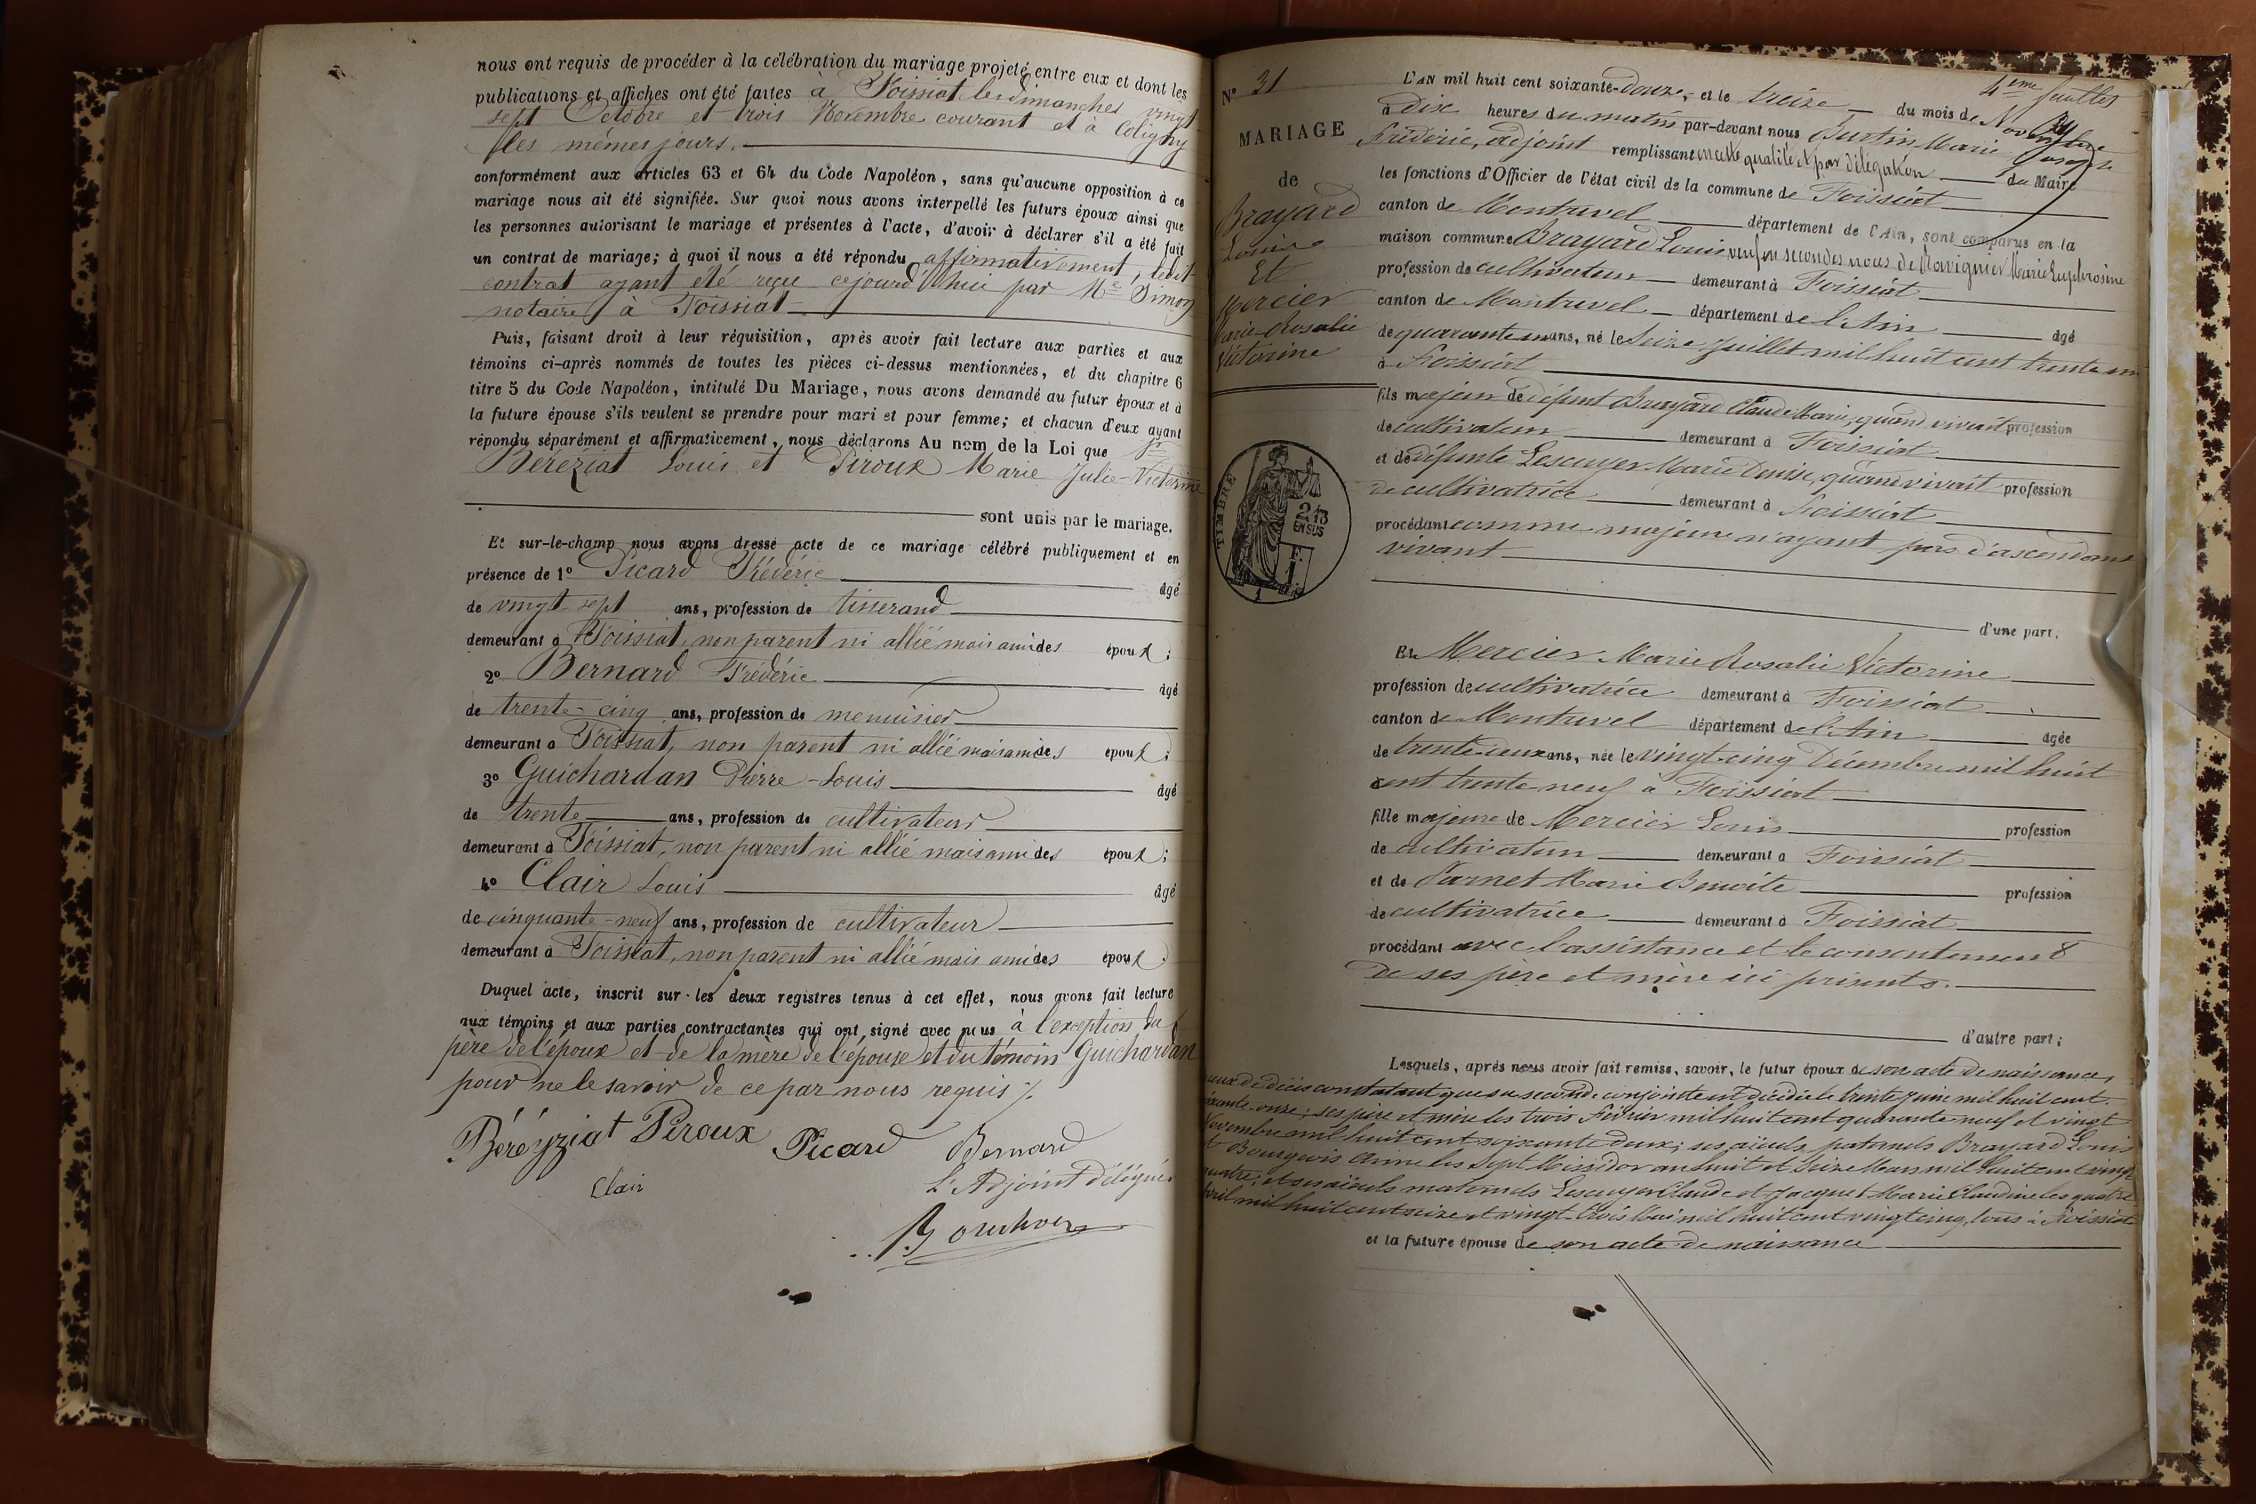 nous ont requis de procéder à la célébration du mariage projeté entre eux et dont les
publications et affiches ont été faites à Foissiat les dimanches vingt
sept Octobre et trois Novembre courant et à Coligny
les mêmes jours.
conformément aux articles 63 et 64 du Code Napoléon, sans qu'aucune opposition à ce
mariage nous ait été signifiée. Sur quoi nous avons interpellé les futurs époux ainsi que
les personnes autorisant le mariage et présentes à l'acte, d'avoir à déclarer s'il a été fait
un contrat de mariage; à quoi il nous a été répondu affirmativement, ledit
contrat ayant été reçu cejourd'hui par Me Simon
notaire à Foissiat
Puis, faisant droit à leur réquisition, après avoir fait lecture aux parties et aux
témoins ci-après nommés de toutes les pièces ci-dessus mentionnées, et du chapitre 6
titre 5 du Code Napoléon, intitulé Du Mariage, nous avons demandé au futur époux et à
la future épouse s'ils veulent se prendre pour mari et pour femme; et chacun d'eux ayant
répondu séparément et affirmativement, nous déclarons Au nom de la Loi que
Béréziat Louis et Piroux Marie Julie-Victorine
sont unis par le mariage.
Et sur-le-champ nous avons dressé acte de ce mariage célébré publiquement et en
présence de 1º Picard Frédéric âgé
de vingt sept ans, profession de tisserand
demeurant à Foissiat, non parent ni allié mais ami des époux;
2º Bernard Frédéric âgé
de trente-cinq ans, profession de menuisier
demeurant à Foissiat, non parent ni allié mais ami des époux;
3º Guichardan Pierre-Louis âgé
de trente ans, profession de cultivateur
demeurant à Foissiat, non parent ni allié mais ami des époux;
4º Clair Louis âgé
de cinquante-neuf ans, profession de cultivateur
demeurant à Foissiat, non parent ni allié mais ami des époux.
Duquel acte, inscrit sur les deux registres tenus à cet effet, nous avons fait lecture
aux témoins et aux parties contractantes qui ont signé avec nous à l'exception du
père de l'époux et de la mère de l'épouse et du témoin Guichardan
pour ne le savoir de ce par nous requis
Béréyziat Piroux Picard Bernard
Clair
L'Adjoint Délégué
Nº 31
MARIAGE
de
Brayard
Louis
Et
Mercier
Marie-Rosalie
Victorine
TIMBRE
2/10
EN SUS
4eme feuillet
L'AN mil huit cent soixante-douze, et le treize du mois de Novembre
à dix heures du matin par-devant nous Burtin Marie Joseph
Frédéric, adjoint remplissant en cette qualité et par délégation du Maire
les fonctions d'Officier de l'état civil de la commune de Foissiat
canton de Montrevel département de l'Ain, sont comparus en la
maison commune Brayard Louis veuf en secondes noces de Marie Euphrosine
profession de cultivateur demeurant à Foissiat
canton de Montrevel département de l'Ain âgé
de quarante un ans, né le Seize Juillet mil huit cent trente un
à Foissiat
fils majeur de défunt Brayard Claude Marie, quand vivait profession
de cultivateur demeurant à Foissiat
et de défunte Lescuyer Marie Denise, quand vivait profession
de cultivatrice demeurant à Foissiat
procédant comme majeur n'ayant pas d'ascendans
vivant
d'une part;
Et Mercier Marie Rosalie Victorine
profession de cultivatrice demeurant à Foissiat
canton de Montrevel département de l'Ain âgée
de trente-deux ans, née le vingt-cinq Décembre mil huit
cent trente-neuf à Foissiat
fille majeure de Mercier Louis profession
de cultivateur demeurant à Foissiat
et de Marie Benoite profession
de cultivatrice demeurant à Foissiat
procédant avec l'assistance et le consentement
de ses père et mère ici présents.
d'autre part;
Lesquels, après nous avoir fait remise, savoir, le futur époux de son acte de naissance,
ceux de décès constatant que sa seconde conjointe est décédée le trente juin mil huit cent
soixante-onze; ses père et mère les trois Février mil huit cent quarante neuf et vingt
Novembre mil huit cent soixante deux; ses aïeuls paternels Brayard Louis
et Bourgeois Anne les Sept Messidor an huit et Seize Mars mil huit cent vingt
quatre; et ses aïeuls maternels Lescuyer Claude et Jacquet Marie Claudine les quatre
Avril mil huit cent seize et vingt-trois mil huit cent vingt cinq, tous à Foissiat
et la future épouse de son acte de naissance